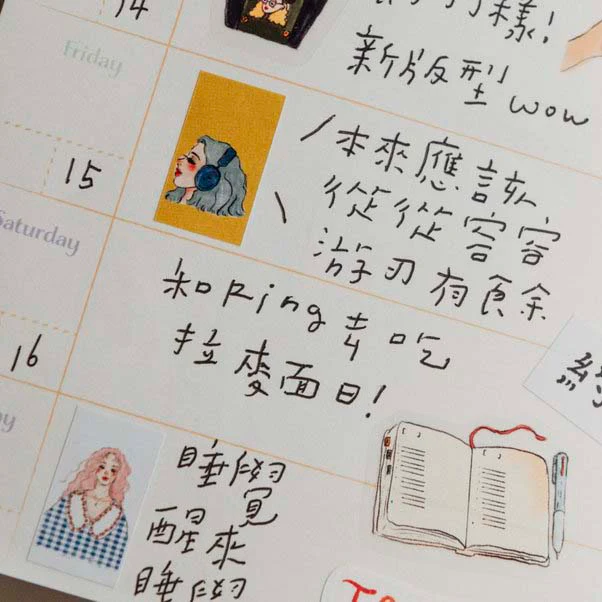 14
樣!
新版型 wow
Friday
15
本來應該
從從容容
游刃有餘
Saturday
16
和Ring去吃
拉麵日!
睡覺
醒來
睡